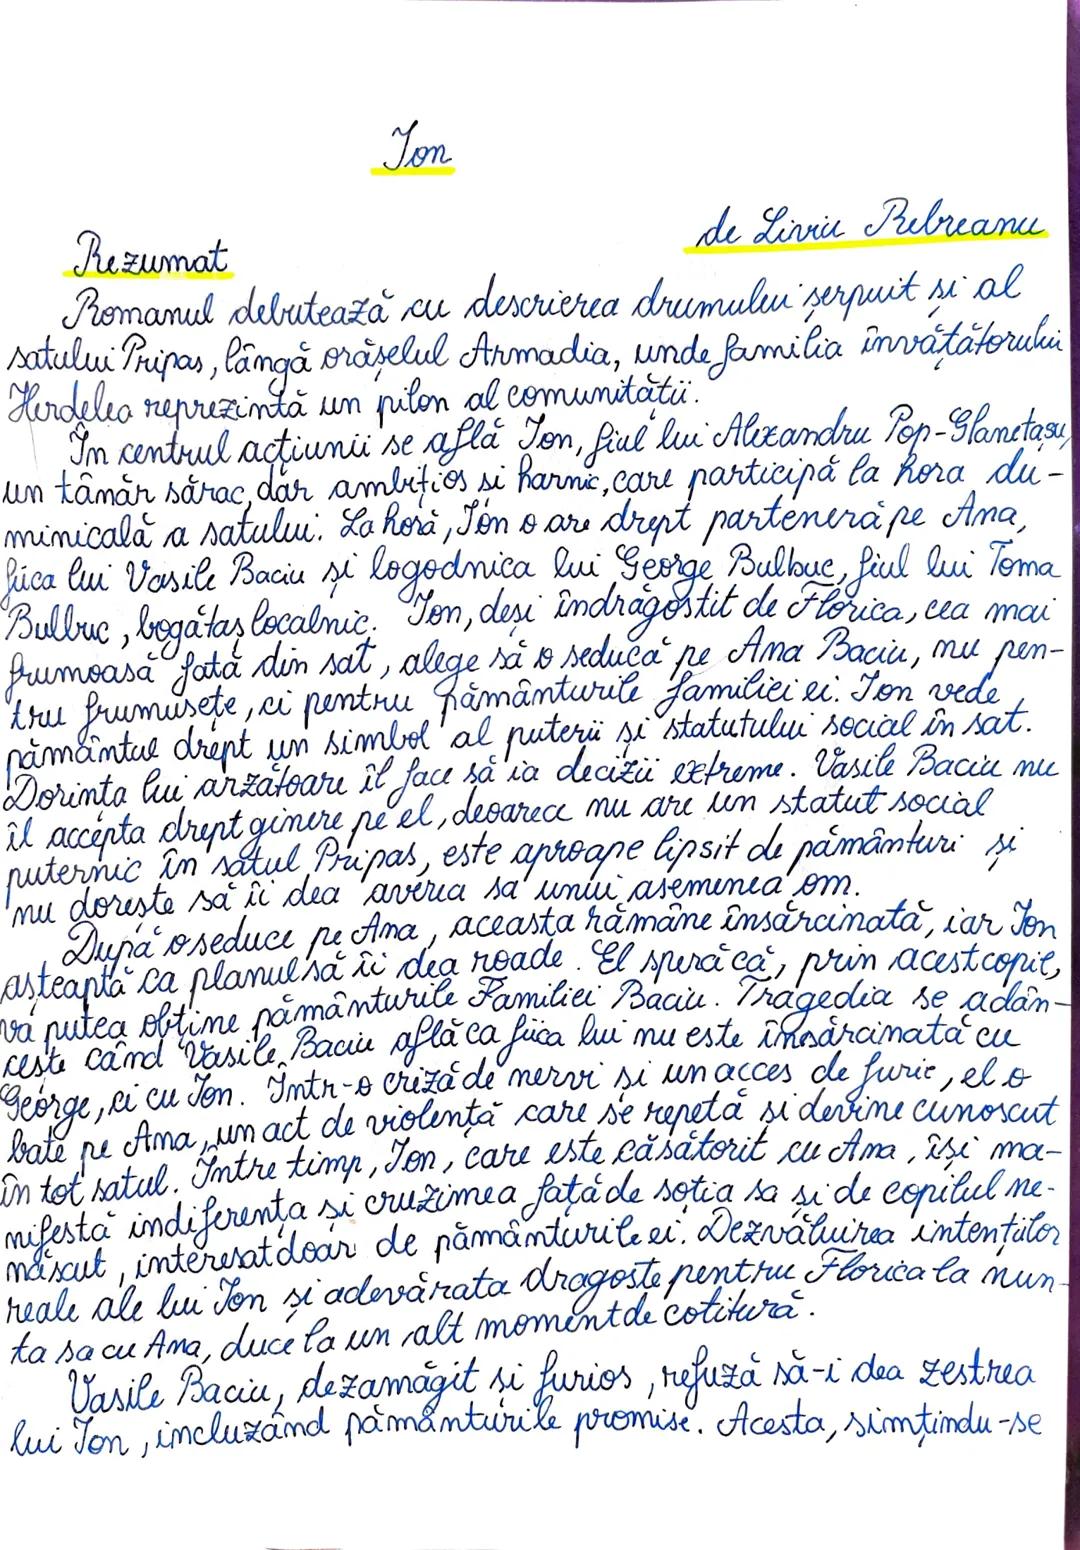 Ion
de Liviu Rebreanu
Rezumat
Romanul debutează cu descrierea drumului șerpuit și al
satului Pripas, lângă orășelul Armadia, unde familia învățătorului
Herdelea reprezintă un pilon al comunității.
În centrul acțiunii se află Ion, fiul lui Alexandru Pop-Glanetașu,
un tânăr sărac, dar ambițios și harnic, care participă la hora du-
minicală a satului. La horă, Ion o are drept parteneră pe Ana,
fiica lui Vasile Baciu și logodnica lui George Bulbuc, fiul lui Toma
Bulbuc, bogătaș localnic. Ion, deși îndrăgostit de Florica, cea mai
frumoasă fată din sat, alege să o seducă pe Ana Baciu, nu pen-
tru frumusețe, ci pentru pământurile familiei ei. Ion vede
pământul drept un simbol al puterii și statutului social în sat.
Dorința lui arzătoare îl face să ia decizii extreme. Vasile Baciu nu
îl accepta drept ginere pe el, deoarece nu are un statut social
puternic în satul Pripas, este aproape lipsit de pământuri și
nu dorește să îi dea averea sa unui asemenea om.
După o seduce pe Ana, aceasta rămâne însărcinată, iar Ion
așteaptă ca planul să îi dea roade. El speră că, prin acest copil,
va putea obține pământurile Familiei Baciu. Tragedia se adân-
cește când Vasile Baciu află ca fiica lui nu este însărcinată cu
George, ci cu Ion. Într-o criză de nervi și un acces de furie, el o
bate pe Ana, un act de violență care se repetă și devine cunoscut
în tot satul. Între timp, Ion, care este căsătorit cu Ana, își ma-
nifestă indiferența și cruzimea față de soția sa și de copilul ne-
născut, interesat doar de pământurile ei. Dezvăluirea intențiilor
reale ale lui Ion și adevărata dragoste pentru Florica la nun-
ta sa cu Ana, duce la un alt moment de cotitură.
Vasile Baciu, dezamăgit și furios, refuză să-i dea zestrea
lui Ion, incluzând pământurile promise. Acesta, simțindu-se